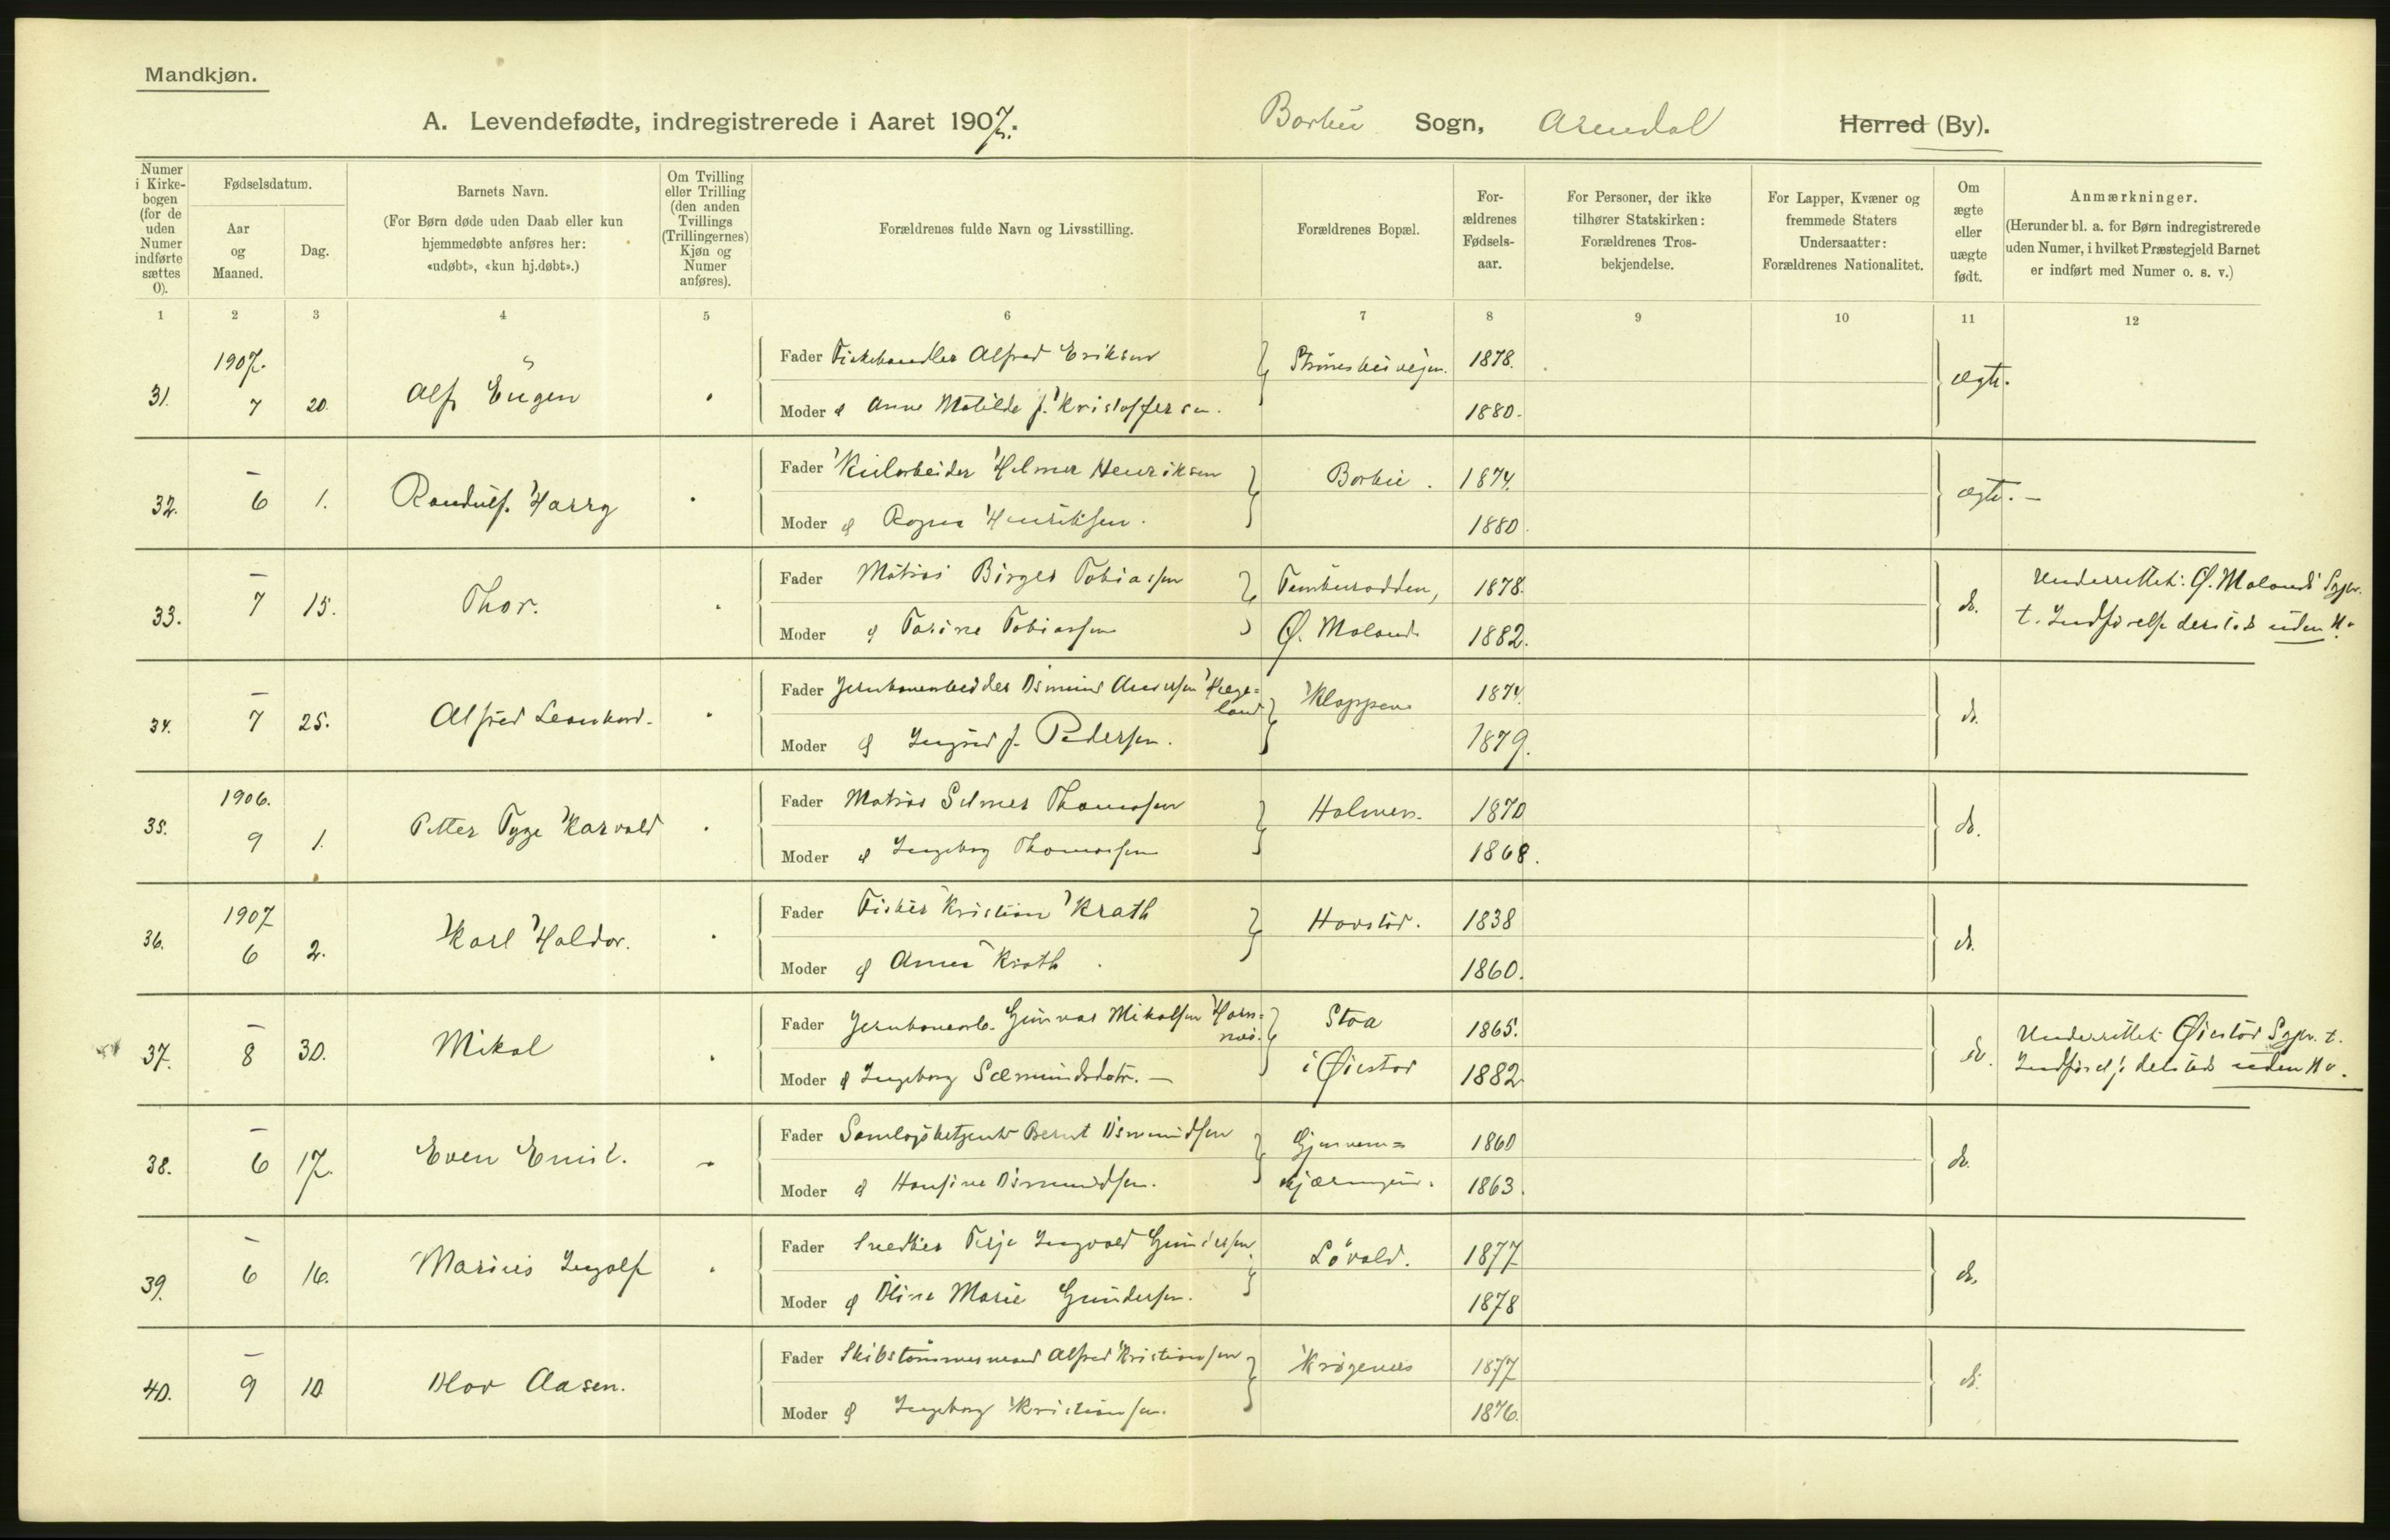 Mandkjøn.
A. Levendefødte, indregistrerede i Aaret 1907. Barbu Sogn, Arendal Herred (By).
Numer i Kirkebogen (for de uden Numer indførte sættes 0).
Fødselsdatum.
Aar og Maaned.
Dag.
Barnets Navn.
(For Børn døde uden Daab eller kun hjemmedøbte anføres her: «udøbt», «kun hj.døbt».)
Om Tvilling eller Trilling (den anden Tvillings (Trillingernes) Kjøn og Numer anføres).
Forældrenes fulde Navn og Livsstilling.
Forældrenes Bopæl.
For-ældrenes Fødsels-aar.
For Personer, der ikke tilhører Statskirken: Forældrenes Tros-bekjendelse.
For Lapper, Kvæner og fremmede Staters Undersaatter: Forældrenes Nationalitet.
Om ægte eller uægte født.
Anmærkninger.
(Herunder bl. a. for Børn indregistrerede uden Numer, i hvilket Præstegjeld Barnet er indført med Numer o. s. v.)
1 2 3 4 5 6 7 8 9 10 11 12
1907.
31. 7 20. Alf Eugen
Fader Fiskehandler Alfred Eriksen 1878. ægte.
Moder Anne Matilde f. Kristoffersen. 1880.
32. – 6 1. Randulf Harry
Fader Kularbeider Hilmer Henriksen Barbu. 1874. ægte. –
Moder Ragna Henriksen. 1880.
33. – 7 15. Thor.
Fader Matros Birger Tobiassen 1878. do.
Moder Tarine Tobiassen Ø. Moland 1882.
Underrettet: Ø. Molands Sgpr.
t. Indførelse dersteds uden No
34. – 7 25. Alfred Leonhard.
Fader Jernbanearbeider Osmund Andersen Hege=
land Kloppene 1874. do.
Moder Ingrid f. Pedersen. 1879.
1906.
35. 9 1. Petter Tyge Harvald
Fader Matros Selmer Thomassen Holmen. 1870 do.
Moder Ingeborg Thomassen 1868.
1907
36. 6 2. Karl Haldor.
Fader Fisker Kristian Krath 1838 do.
Moder Anna Krath. 1860.
37. – 8 30. Mikal
Fader Jernbanearb. Gunvar Mikalsen Horn=
næs. Stoa 1865. do.
Moder Ingeborg Sæmundsdatr. – i Øiestad 1882
Underrettet Øiestad Sgpr. t.
Indførelse dersteds uden No.
38. – 6 17. Even Emil.
Fader Bernt Osmundsen 1860 do.
Moder Hansine Osmundsen. kjærnging. 1863.
39. – 6 16. Marius Ingolf
Fader Snedker Terje Ingvald Gundersen Løvold. 1877 do.
Moder Oline Marie Gundersen. 1878
40. – 9 10 Olav Aasen.
Fader Skibstømmermand Alfred Kristiansen Krøgenes 1877 do.
Moder Ingeborg Kristiansen. 1876.